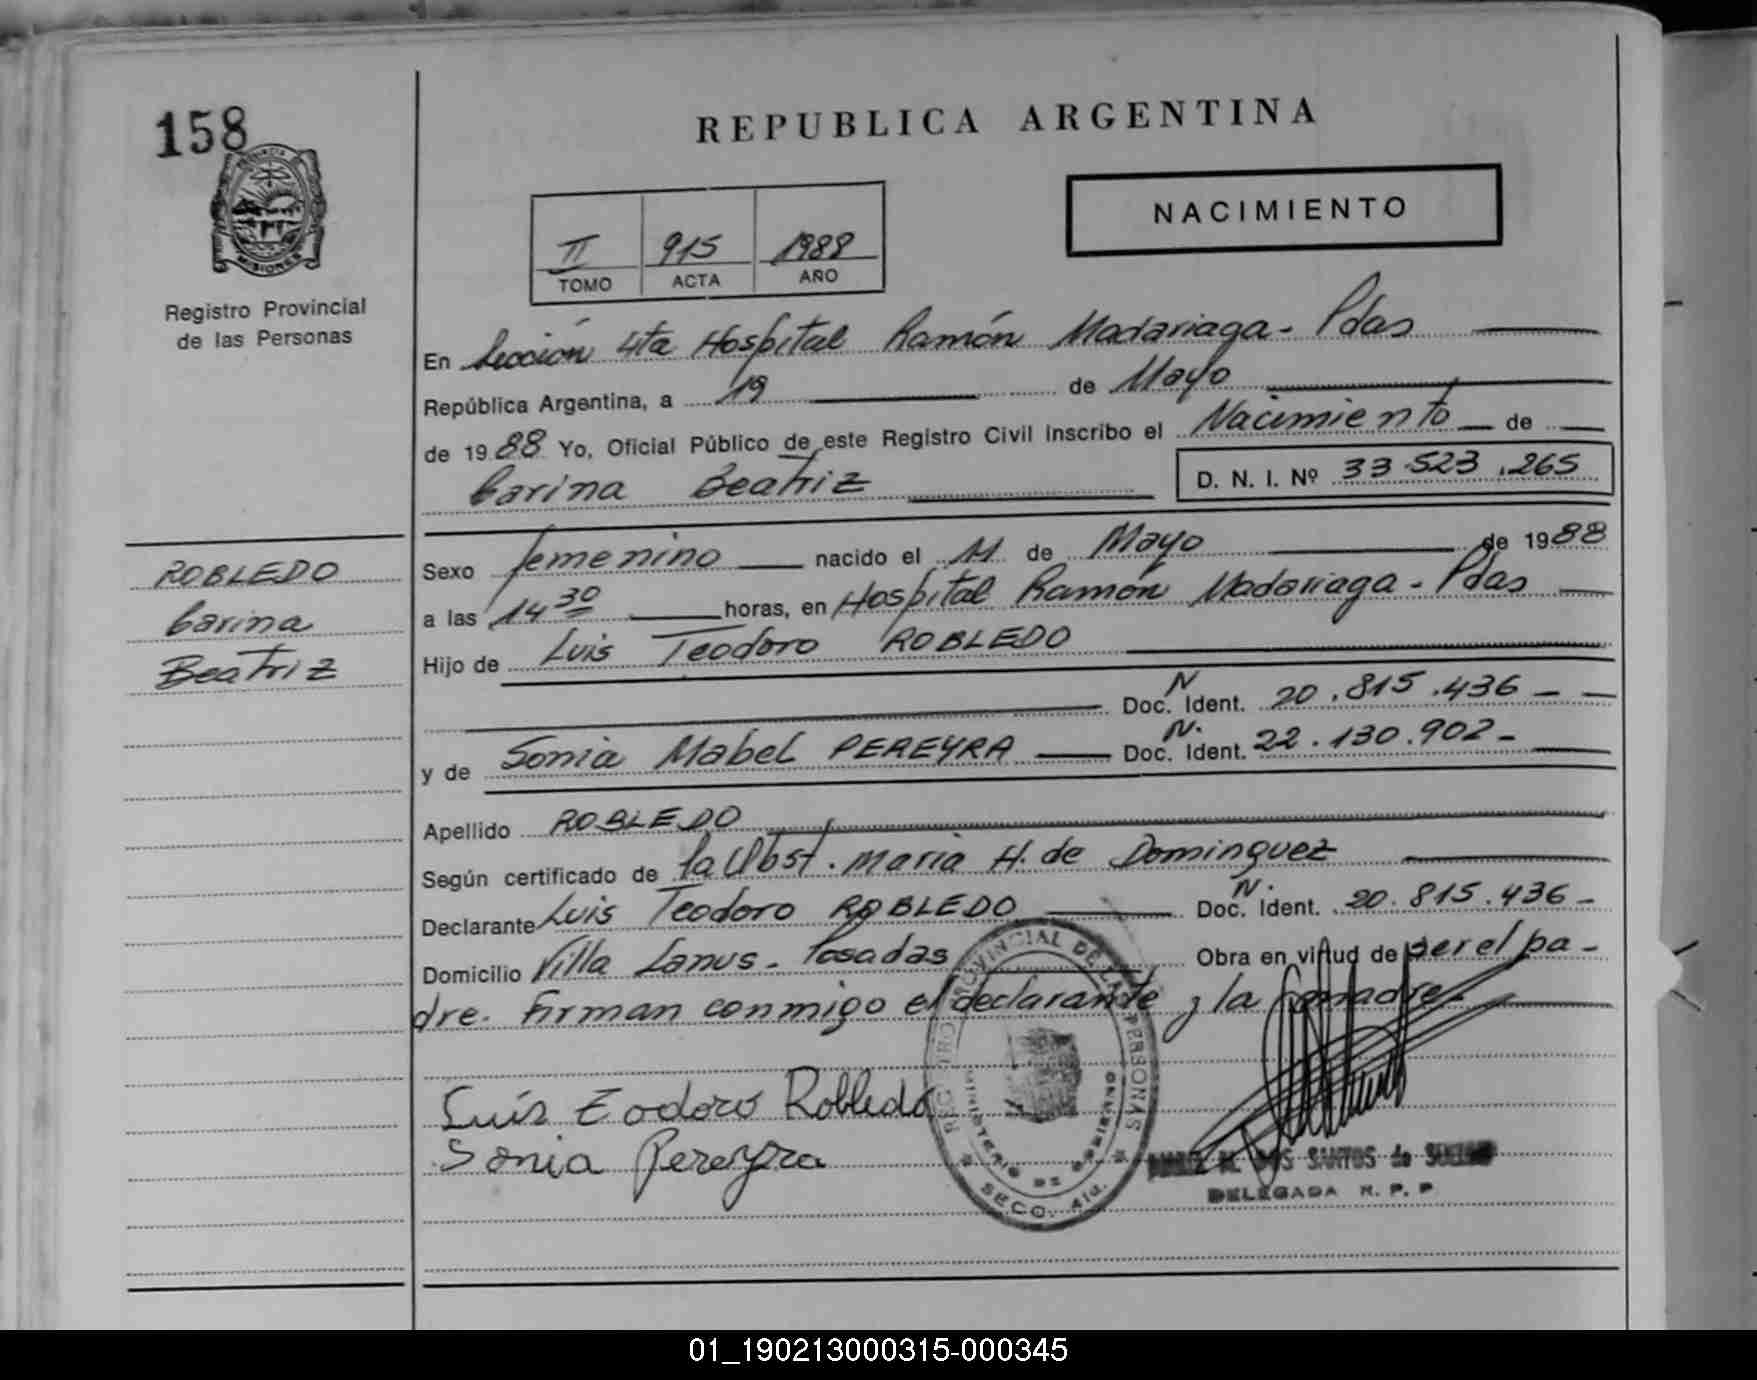 158
PROVINCIA DE
MISIONES
Registro Provincial
de las Personas
REPUBLICA ARGENTINA
NACIMIENTO
II 915 1988
TOMO ACTA AÑO
En Sección 4ta Hospital Ramón Madariaga - Pdas
República Argentina, a 19 de Mayo
de 1988 Yo, Oficial Público de este Registro Civil inscribo el Nacimiento de
Carina Beatriz D. N. I. Nº 33.523.265
ROBLEDO
Carina
Beatriz
Sexo femenino nacido el 11 de Mayo de 1988
a las 14 30 horas, en Hospital Ramón Madariaga - Pdas
Hijo de Luis Teodoro ROBLEDO
N
Doc. Ident. 20.815.436 -
N.
y de Sonia Mabel PEREYRA Doc. Ident. 22.130.902 -
Apellido ROBLEDO
Según certificado de la Obst. maria H. de Dominguez
N.
Declarante Luis Teodoro ROBLEDO Doc. Ident. 20.815.436 -
Domicilio Villa Lanus - Posadas Obra en virtud de ser el pa-
dre. Firman conmigo el declarante y la madre
Luis Teodoro Robledo
Sonia Pereyra
REGISTRO PROVINCIAL DE LAS PERSONAS
MINISTERIO DE GOBIERNO
SECC. 4ta.
DOS SANTOS de
DELEGADA R. P. P.
01_190213000315-000345